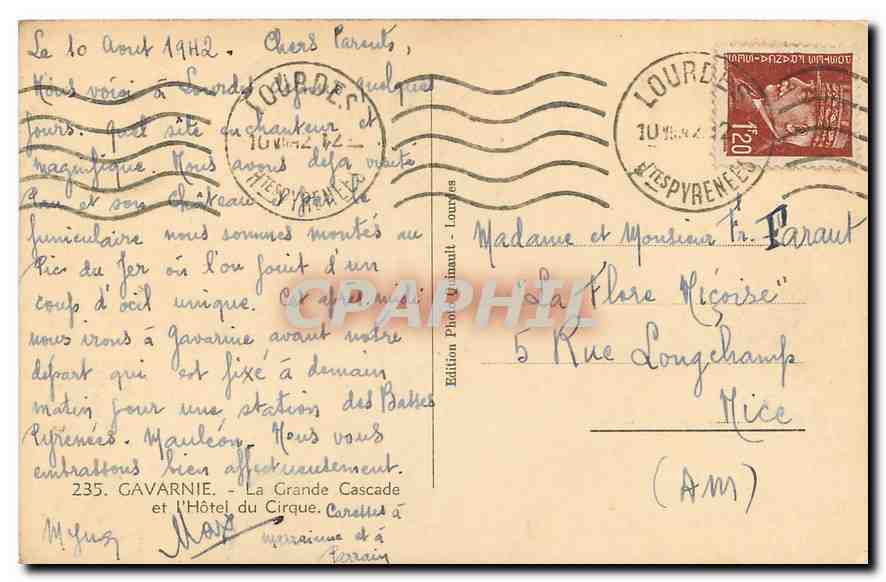 Le 10 Aout 1942. Chers Parents,
Nous voici à Lourdes depuis quelques
jours. Quel site enchanteur et
magnifique. Nous avons déjà visité
Pau et son château. Par le
funiculaire nous sommes montés au
Pic du Jer où l'on jouit d'un
coup d'œil unique. Cet après-midi
nous irons à Gavarnie avant notre
départ qui est fixé à demain
matin pour une station des Basses
Pyrénées. Mauléon. Nous vous
embrassons bien affectueusement.
235. GAVARNIE. - La Grande Cascade
et l'Hôtel du Cirque.
Caresses à
marraine et à
Parrain
Max
Edition Photo Quinault - Lourdes
LOURDES
HTES PYRENEES
LOURDES
HTES PYRENEES
1F20
Madame et Monsieur Fr. Faraut
"La Flore Niçoise"
5 Rue Longchamp
Nice
(AM)
CPAPHIL